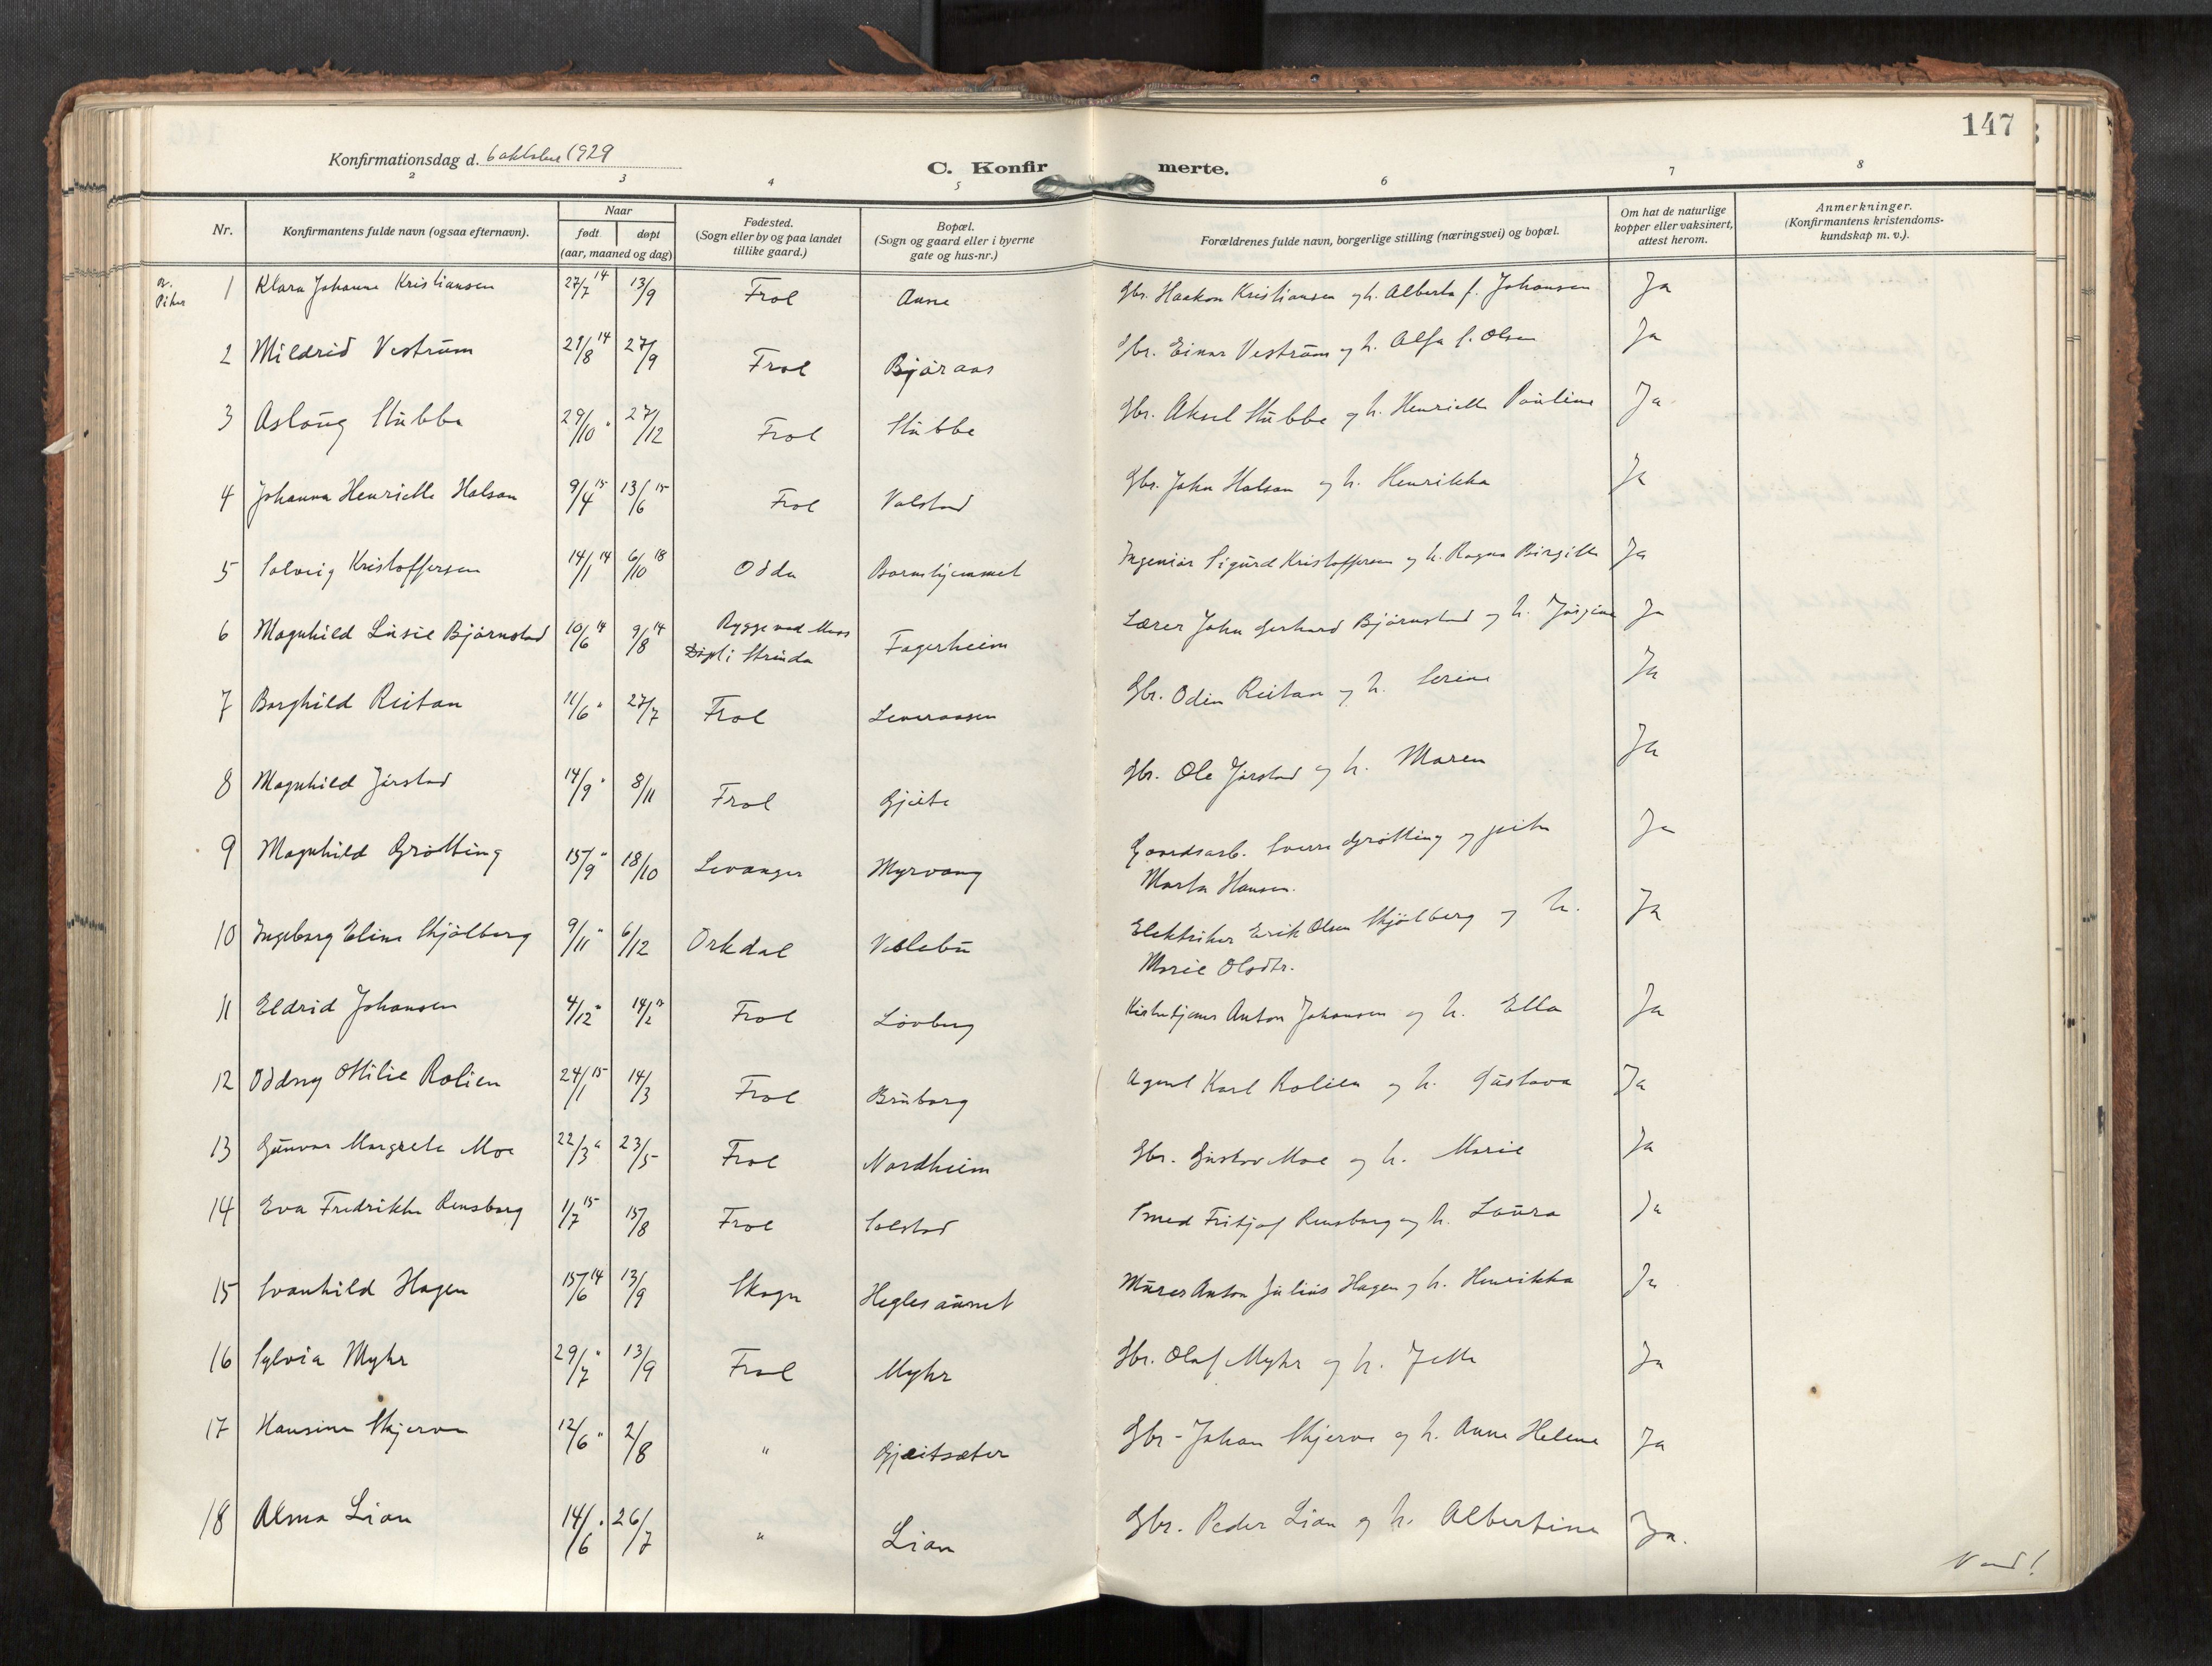 147
Konfirmationsdag d. 6 oktober 1929
C. Konfirmerte.
2 3 4 5 6 7 8
Nr.
Konfirmantens fulde navn (ogsaa efternavn).
Naar
født døpt
(aar, maaned og dag)
Fødested.
(Sogn eller by og paa landet
tillike gaard.)
Bopæl.
(Sogn og gaard eller i byerne
gate og hus-nr.)
Forældrenes fulde navn, borgerlige stilling (næringsvei) og bopæl.
Om hat de naturlige
kopper eller vaksinert,
attest herom.
Anmerkninger.
(Konfirmantens kristendoms-
kundskap m. v.).
Piker
1 Klara Johanne Kristiansen 27/7 14 13/9 Frol Aune Gbr. Haakon Kristiansen og h. Alberta f. Johansen Ja
2 Mildrid Vestrum 21/8 14 27/9 Frol Bjøraas Gbr. Einar Vestrum og h. Alfa f. Olsen Ja
3 Aslaug Stubbe 29/10 " 27/12 Frol Stubbe Gbr. Aksel Stubbe og h. Henriette Pauline Ja
4 Johanna Henriette Halsan 9/4 15 13/6 15 Frol Valstad Gbr. John Halsan og h. Henrikka Ja
5 Solveig Kristoffersen 14/1 14 6/10 18 Odda Barnehjemmet Ingeniør Sigurd Kristoffersen og h. Ragna Birgitte Ja
6 Magnhild Lusie Bjørnstad 10/6 14 9/8 14 Rygge ved Moss Fagerheim Lærer John Gerhard Bjørnstad og h. Jørgine Ja
Døpt i Strinda
7 Borghild Reitan 11/6 " 27/7 Frol Leveraasen Gbr. Odin Reitan og h. Serine Ja
8 Magnhild Jørstad 14/9 " 8/11 Frol Gjeite Gbr. Ole Jørstad og h. Maren Ja
9 Magnhild Grøtting 15/9 " 18/10 Levanger Myrvang Gaardsarb. Sverre Grøtting og pike Ja
Marta Hansen.
10 Ingeborg Eline Skjølberg 9/11 " 6/12 Orkdal Veslebu Elektriker Erik Olsen Skjølberg og h. Ja
Marie Olsdtr.
11 Eldrid Johansen 4/12 " 14/2 Frol Løvberg Kirketjener Anton Johansen og h. Ella Ja
12 Oddny Ottilie Rolien 24/1 15 14/3 Frol Bruborg Agent Karl Rolien og h. Gustava Ja
13 Gunvor Margrete Moe 22/3 " 23/5 Frol Nordheim Gbr. Gustav Moe og h. Marie Ja
14 Eva Fredrikke Rensberg 1/7 15 15/8 Frol Solstad Smed Fritjof Rensberg og h. Laura Ja
15 Svanhild Hagen 15/6 14 13/9 Skogn Heglesaunet Murer Anton Julius Hagen og h. Henrikka Ja
16 Sylvia Myhr 29/7 " 13/9 Frol Myhr Gbr. Olaf Myhr og h. Jette Ja
17 Hansine Skjerve 12/6 " 2/8 " Gjeitsæter Gbr - Johan Skjerve og h. Anne Helene Ja
18 Alma Lian 14/6 " 26/7 " Lian Gbr. Peder Lian og h. Albertine Ja.
Vend!